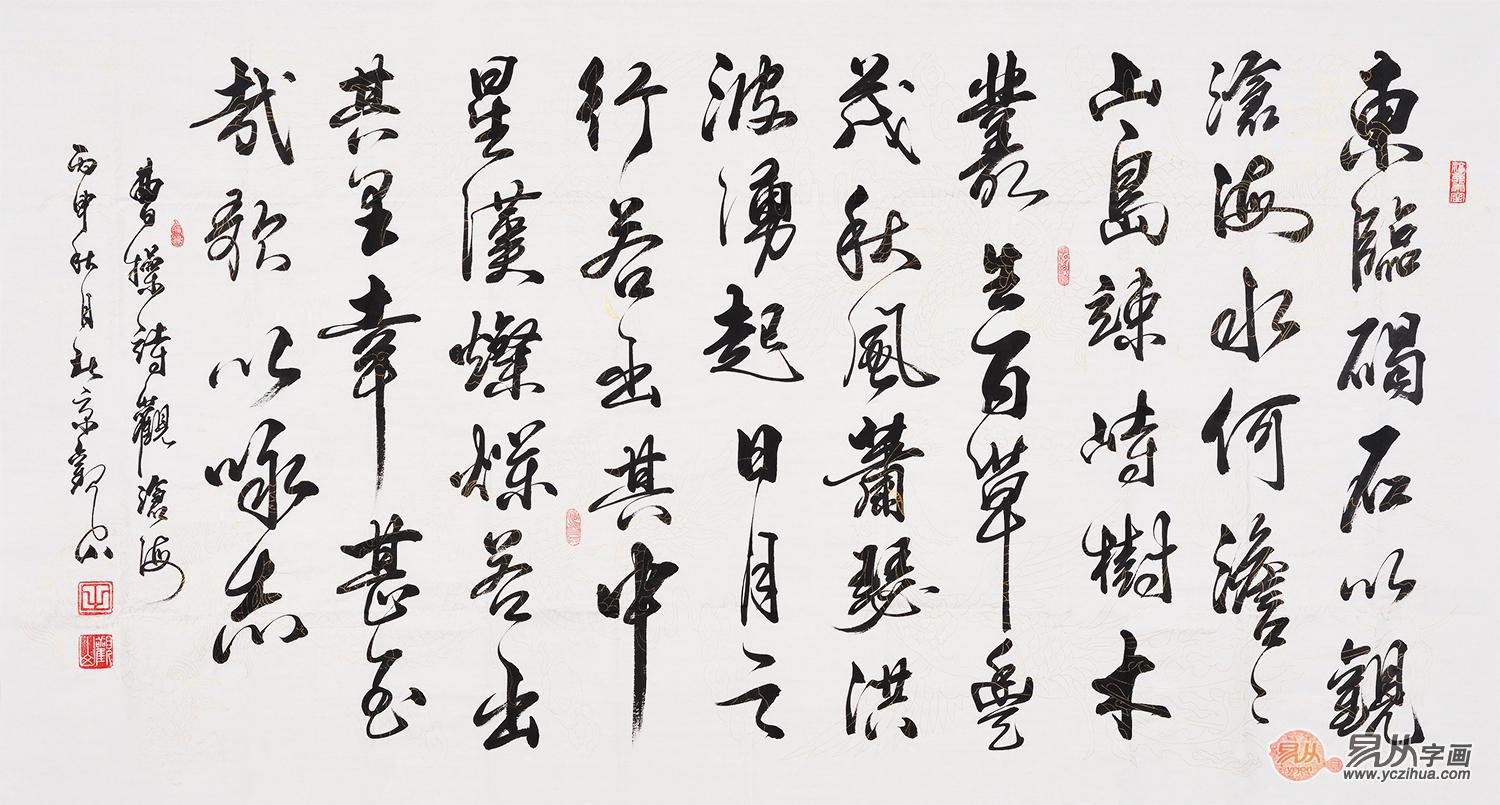 東臨碣石以觀
滄海水何澹〻
山島竦峙樹木
叢生百草豐
茂秋風蕭瑟洪
波湧起日月之
行若出其中
星漢燦爛若出
其里幸甚至
哉歌以咏志
曹操詩觀滄海
丙申秋月京觀山
易从
易从字画
www.yczihua.com